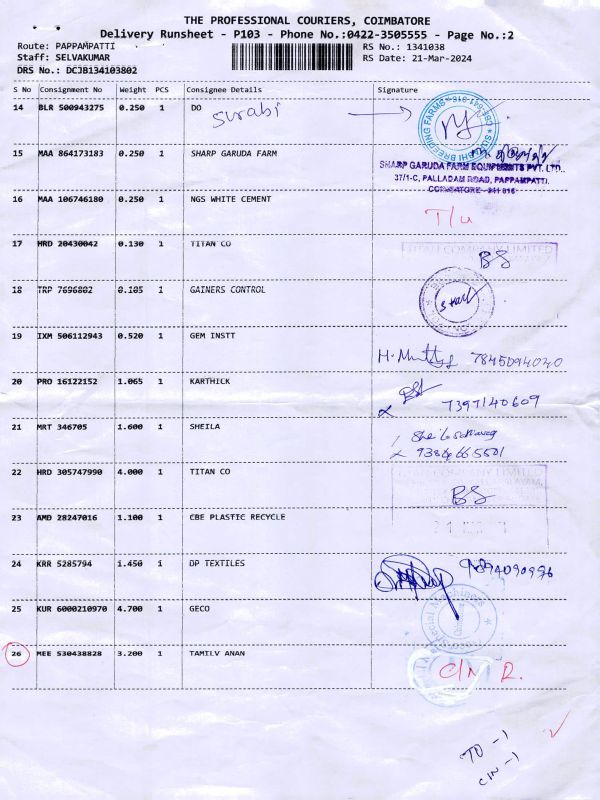 THE PROFESSIONAL COURIERS, COIMBATORE
Delivery Runsheet - P103 - Phone No.:0422-3505555 - Page No.:2
Route: PAPPAMPATTI RS No.: 1341038
Staff: SELVAKUMAR RS Date: 21-Mar-2024
DRS No.: DCJB134103802
S No Consignment No Weight PCS Consignee Details Signature
14 BLR 500943275 0.250 1 DO Surabi
15 MAA 864173183 0.250 1 SHARP GARUDA FARM
SHARP GARUDA FARM EQUIPMENTS PVT. LTD.,
37/1-C, PALLADAM ROAD, PAPPAMPATTI,
COIMBATORE
16 MAA 106746180 0.250 1 NGS WHITE CEMENT T/u
17 HRD 20430042 0.130 1 TITAN CO BS
TITAN COMPANY LIMITED
18 TRP 7696802 0.105 1 GAINERS CONTROL
19 IXM 506112943 0.520 1 GEM INSTT 7845094020
20 PRO 16122152 1.065 1 KARTHICK 7397140609
21 MRT 346705 1.600 1 SHEILA
9384665501
22 HRD 305747990 4.000 1 TITAN CO BS
23 AMD 28247016 1.100 1 CBE PLASTIC RECYCLE
24 KRR 5285794 1.450 1 DP TEXTILES
25 KUR 6000210970 4.700 1 GECO
26 MEE 530438828 3.200 1 TAMILV ANAN C/N R.
TU -1
C/N -1